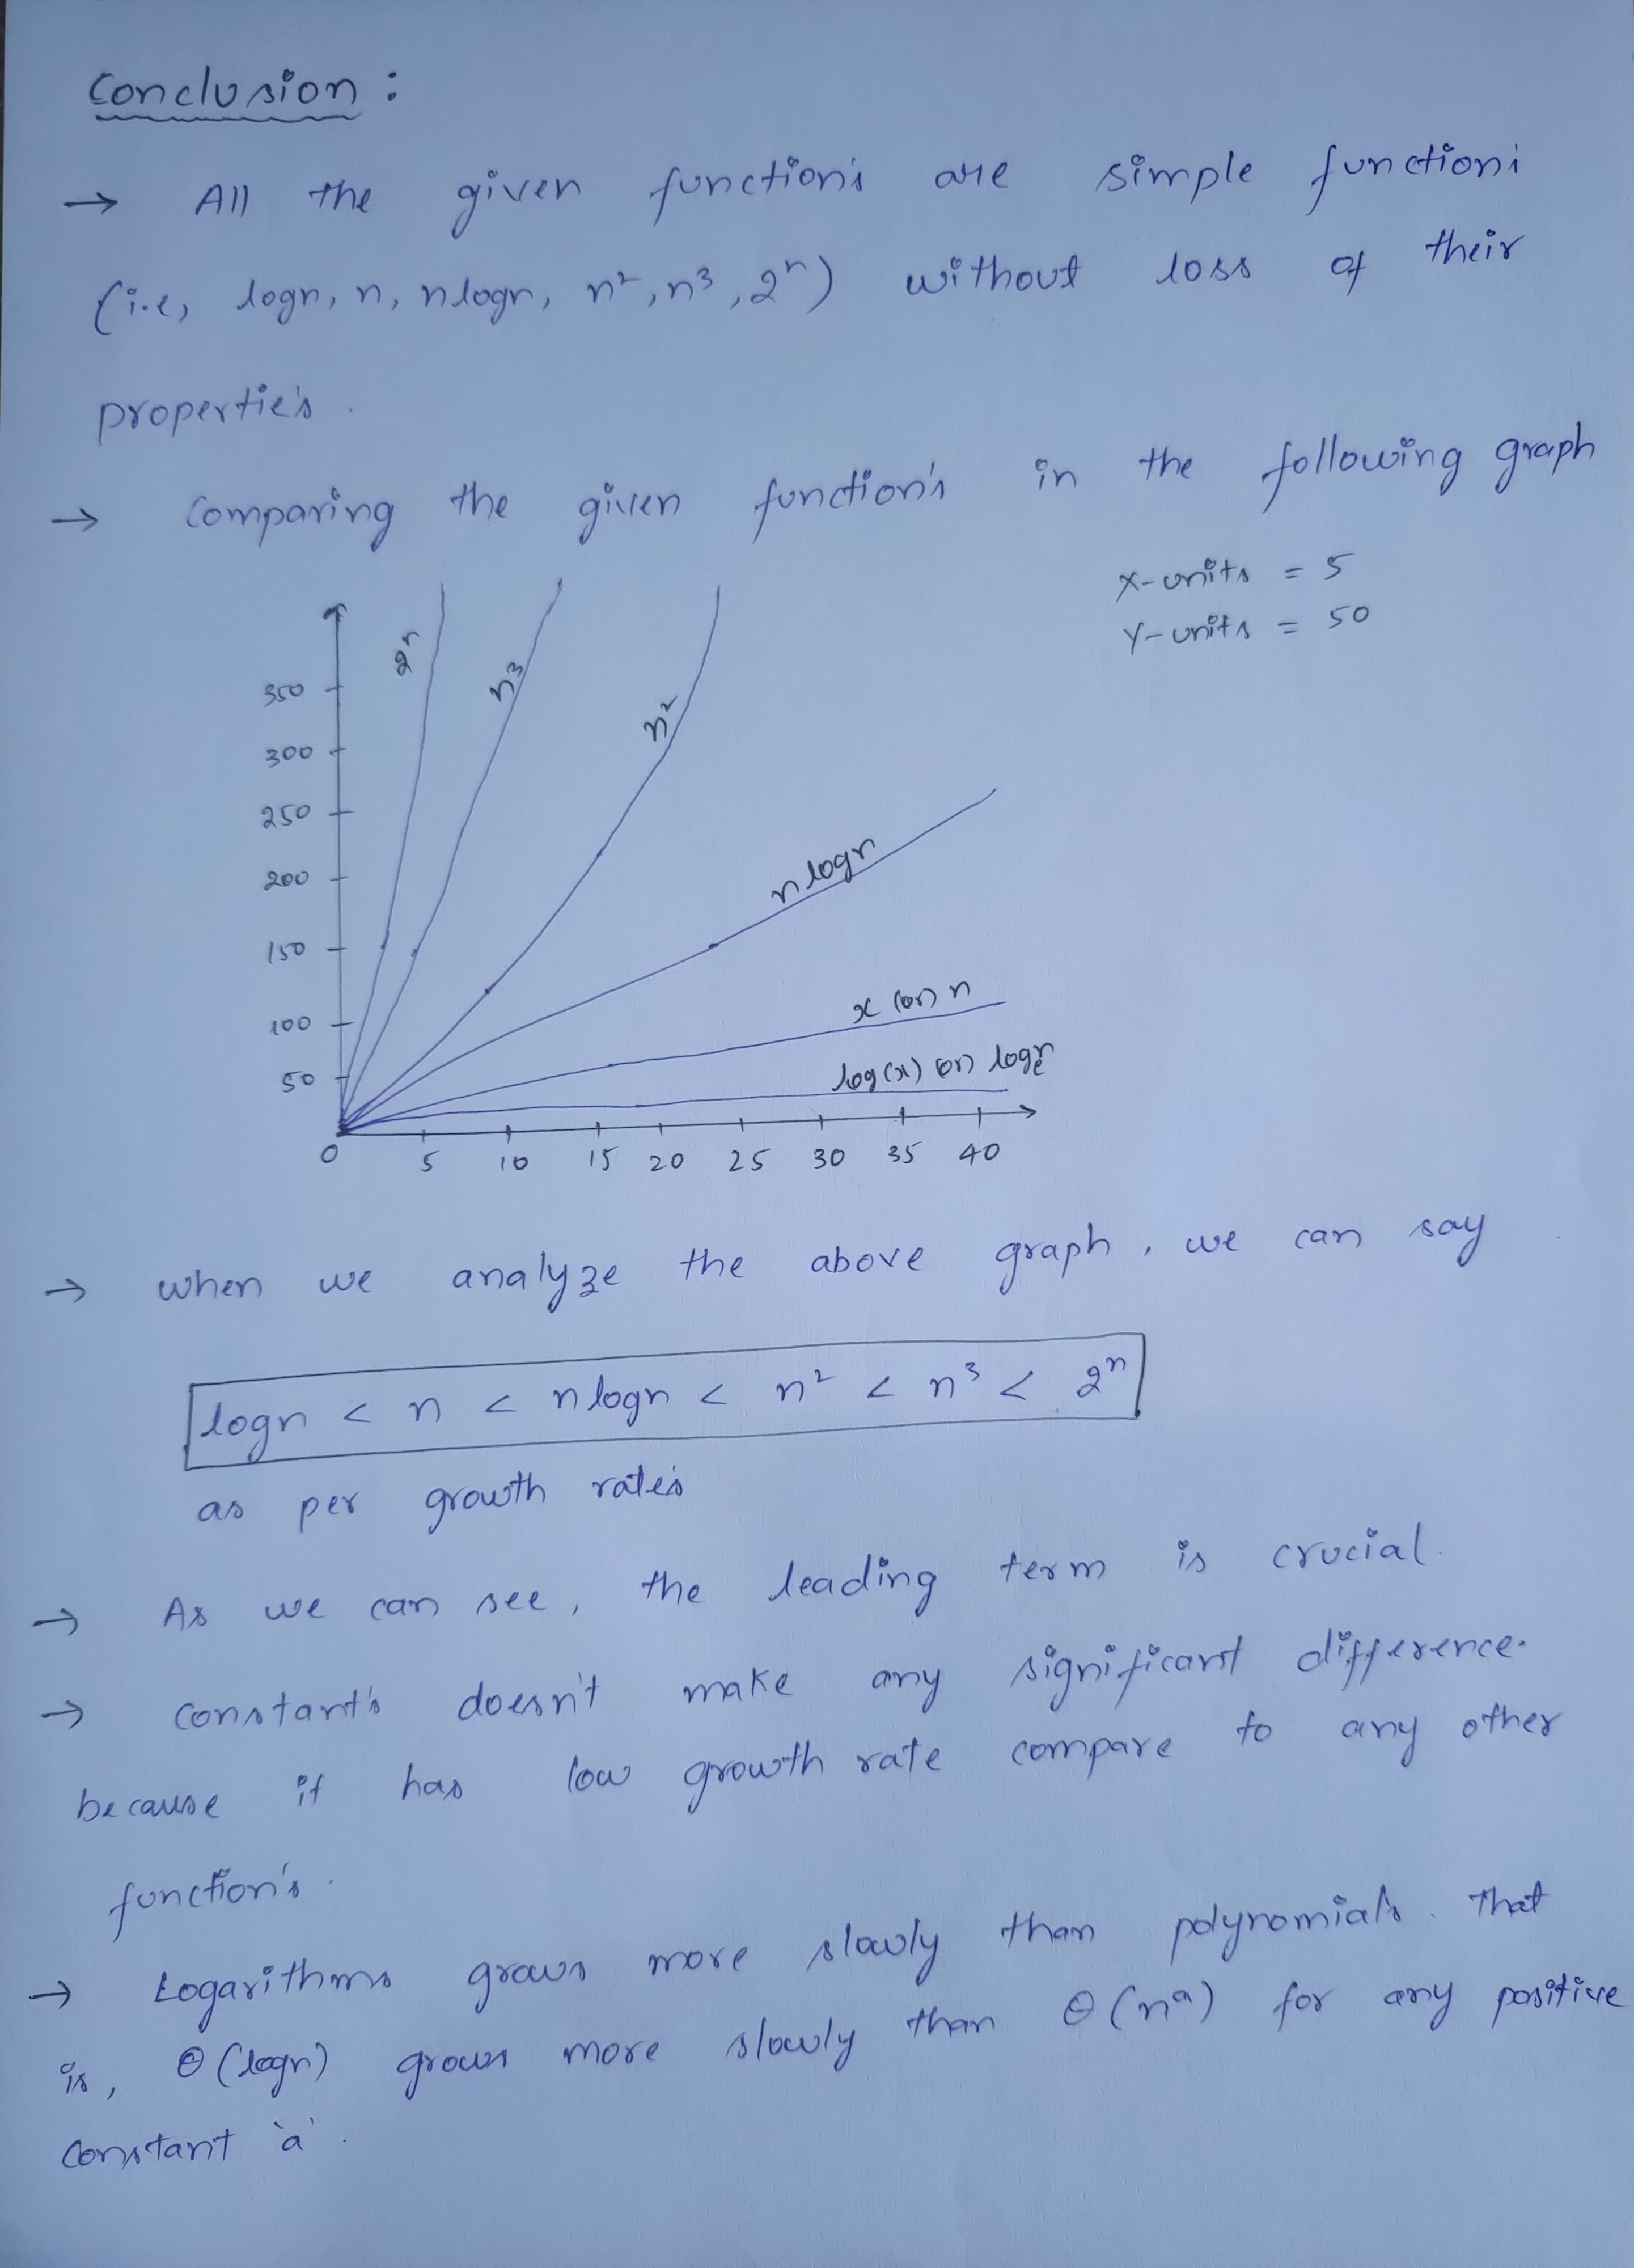 Conclusion :
→ All the given function's are simple functions
(i.e, logn, n, nlogn, n², n³, 2ⁿ) without loss of their
propertie's .
→ Comparing the given function's in the following graph
X-units = 5
Y-units = 50
2ⁿ
n³
n²
n logn
x (or) n
log(x) (or) logₑn
350
300
250
200
150
100
50
0 5 10 15 20 25 30 35 40
→ when we analyze the above graph , we can say
logn < n < n logn < n² < n³ < 2ⁿ
as per growth rate's
→ As we can see , the leading term is crucial.
→ constant's doesn't make any significant difference.
because it has low growth rate compare to any other
function's .
→ Logarithms grows more slowly than polynomial's . That
is, Θ(logn) grows more slowly than Θ(nᵃ) for any positive
constant 'a' .